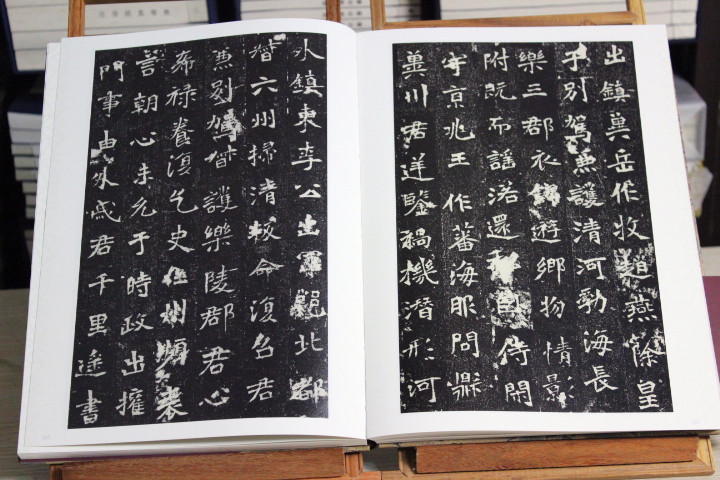 出鎮冀岳作牧趙燕除皇
子別駕兼護清河勃海長
樂三郡衣錦遊鄉物情影
附既而謠渃還侍閑
宇京兆王作蕃海服問鼎
冀川君逆鑒禍機潛形河
外鎮東李公出軍北都
督六州掃清叛命復召君
兼別駕督護樂陵郡君心
希祿養復乞史任州頻表
言朝心未允于時政出權
門事由外戚君千里遙書